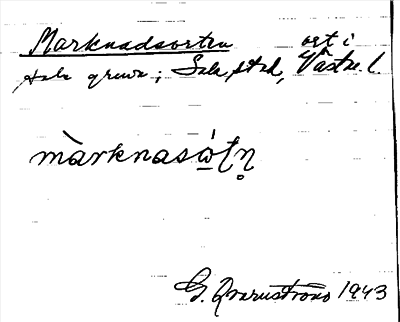 Marknadsorten ort i
Sala gruva; Sala stad, Västm. l.
màrknasώṭṇ
G. Qvarnström 1943